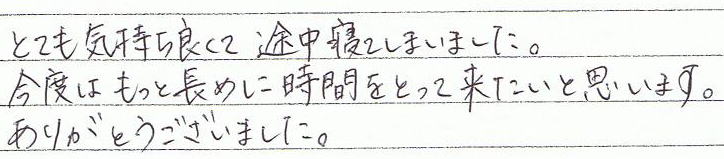 とても気持ち良くて 途中寝てしまいました。
今度は もっと長めに 時間をとって来たいと思います。
ありがとうございました。